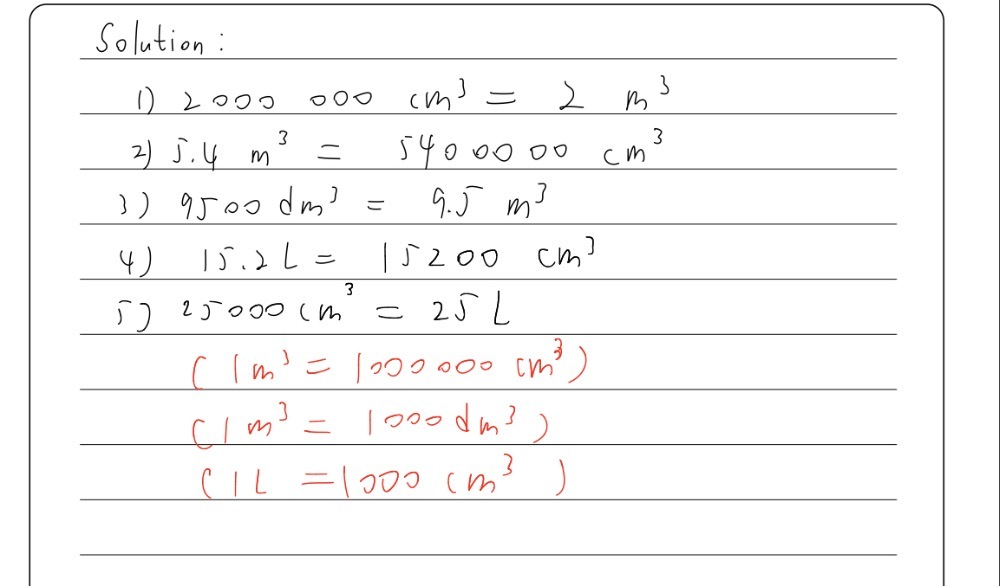 Solution :
1) 2000 000 cm³ = 2 m³
2) 5.4 m³ = 5400000 cm³
3) 9500 dm³ = 9.5 m³
4) 15.2 L = 15200 cm³
5) 25000 cm³ = 25 L
( 1m³ = 1000000 cm³ )
( 1 m³ = 1000 dm³ )
( 1 L = 1000 cm³ )